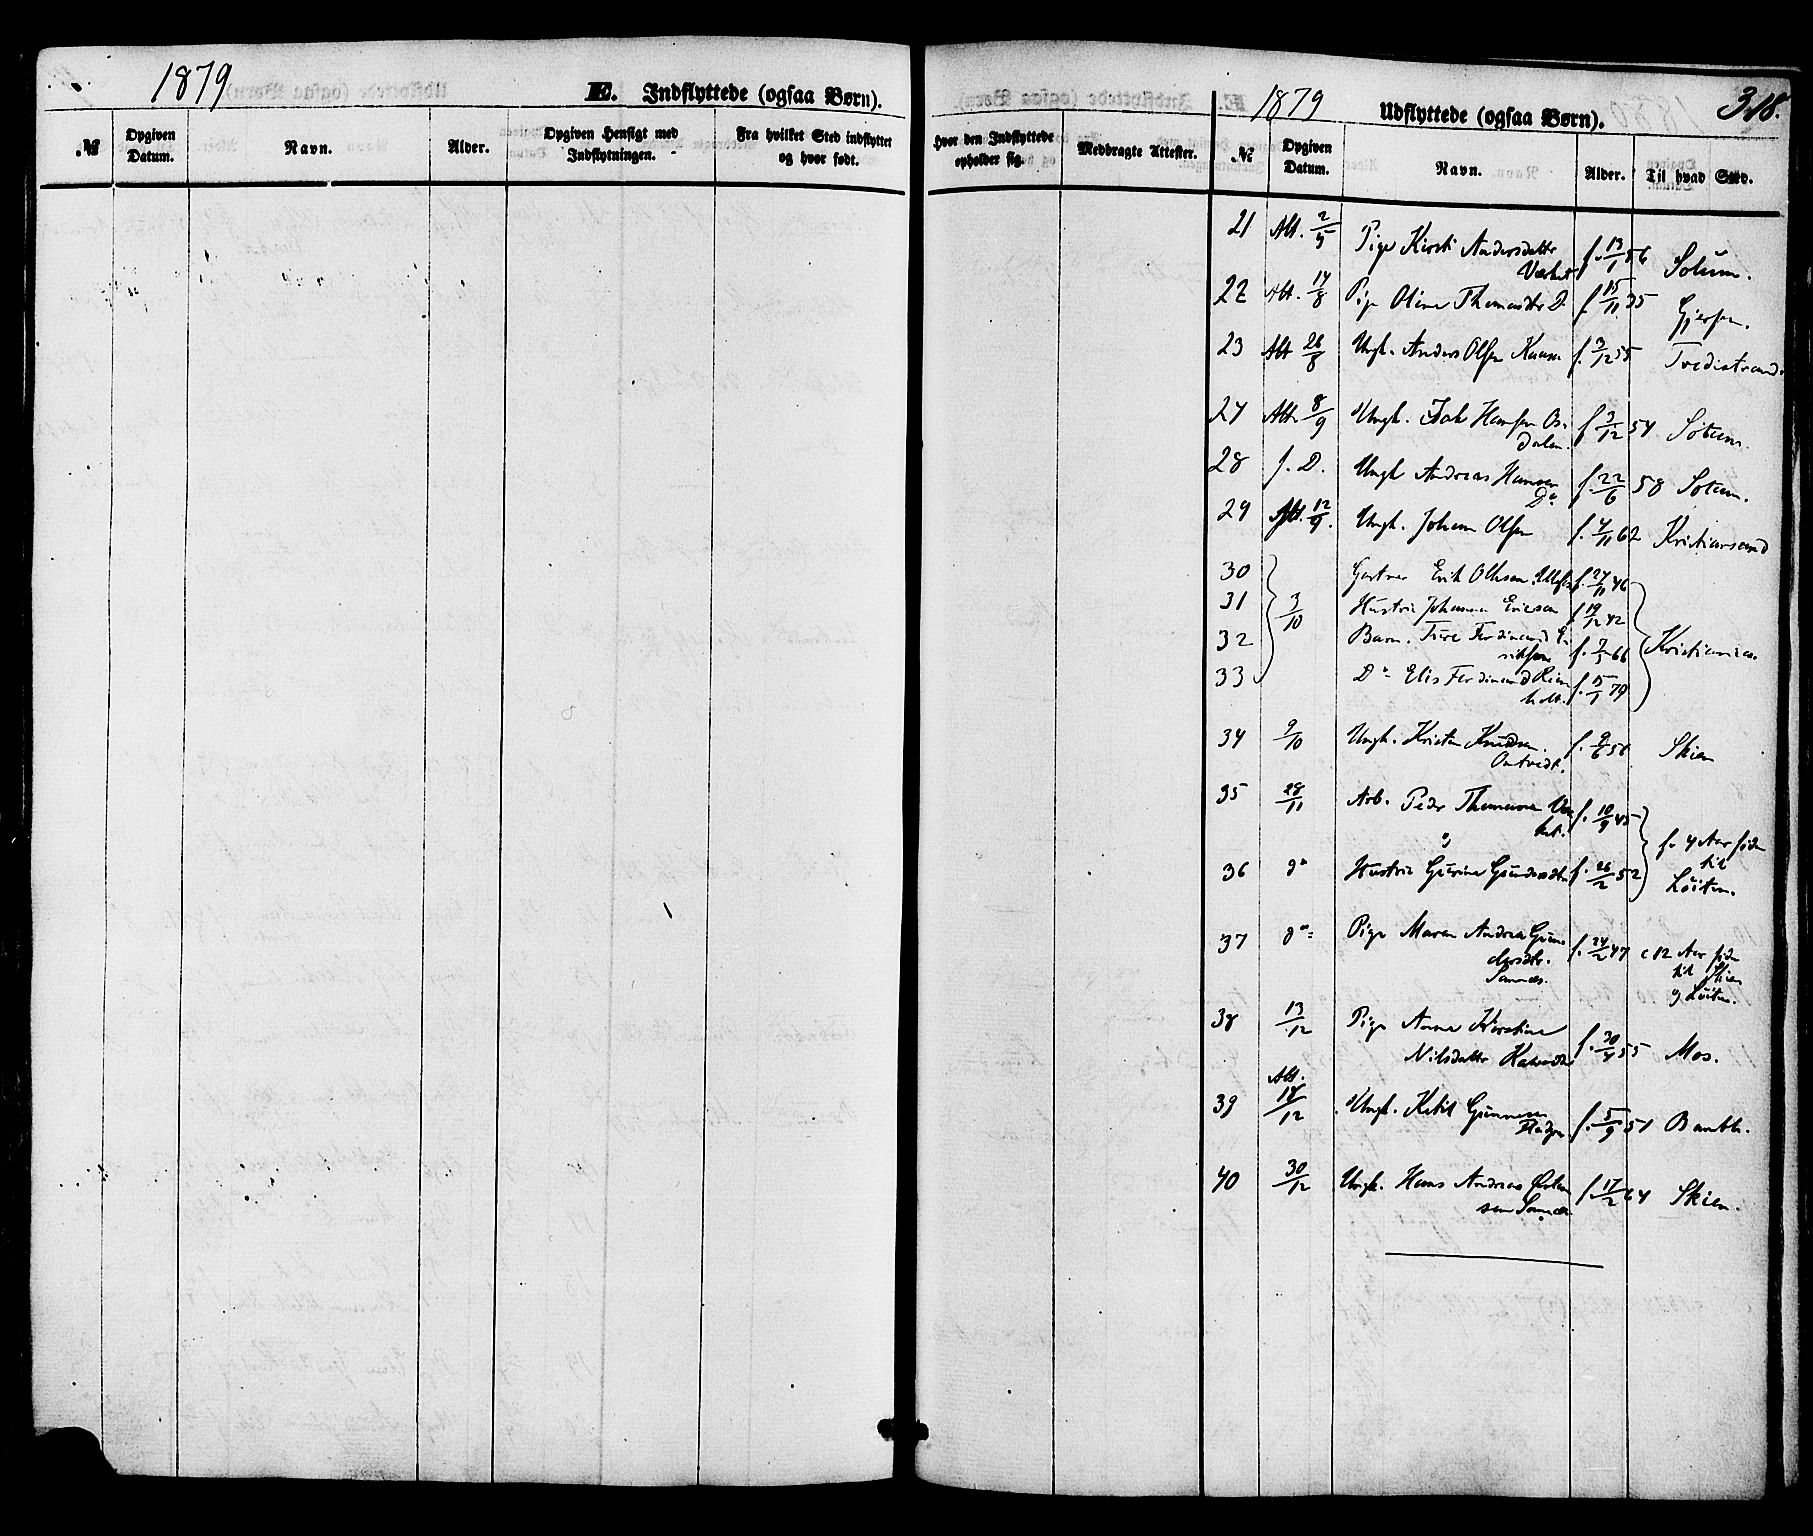 1879
E. Indflyttede (ogsaa Børn).
№
Opgiven Datum.
Navn.
Alder.
Opgiven Hensigt med Indflytningen.
Fra hvilket Sted indflyttet og hvor født.
Hvor den Indflyttede opholder sig.
Medbragte Attester.
1879
Udflyttede (ogsaa Børn).
318.
№
Opgiven Datum.
Navn.
Alder.
Til hvad Sted.
21 Att. 2/5 Pige Kirsti Andersdatter f. 13/1 56 Solum.
22 Att. 14/8 Pige Oline D. f. 15/11 35 Gjerpen.
23 Att 26/8 Ungk. Anders Olsen f. 3/12 55 Tvedestrand.
24 Att. 8/9 Ungk. Hansen Os-
dalen. f. 3/12 54 Solum.
28 s. D. Ungk Andreas Hansen
Do f. 22/6 58 Solum.
29 Att. 12/9. Ungk. Johan Olsen f. 4/11 62 Kristiansand
30 Gartner Erik f. 27/11 46
31 3/10 Hustru Johanna Ericson f 19/12 42
32 Barn. Ferdinand E-
riksen f. 66 Kristiania.
33 Do Elis Ferdinand Rein-
holt. f. 15/1 79
34 9/10 Ungk. Kristen Knudsen.
Ontvedt. f. 9/6 Skien
35 28/11 Arb. Peder f. 10/9 45
36 do Hustru Gurine f. 26/2 52 f. 4 Aar siden
til
Løiten.
37 do Pige Maren Andrea Gun-
dersdtr.
Sannes. f. 24/2 47 c 12 Aar siden
til Skien
og Løiten.
38 13/12 Pige Anne Kirstine
Nilsdatter f. 30/4 55 Mos.
39 Att. 18/12 Ungk. Ketil Gunnersen f. 5/9 51 Bamble.
40 30/12 Ungk. Hans Andreas
sen Sannes f. 17/2 64 Skien.